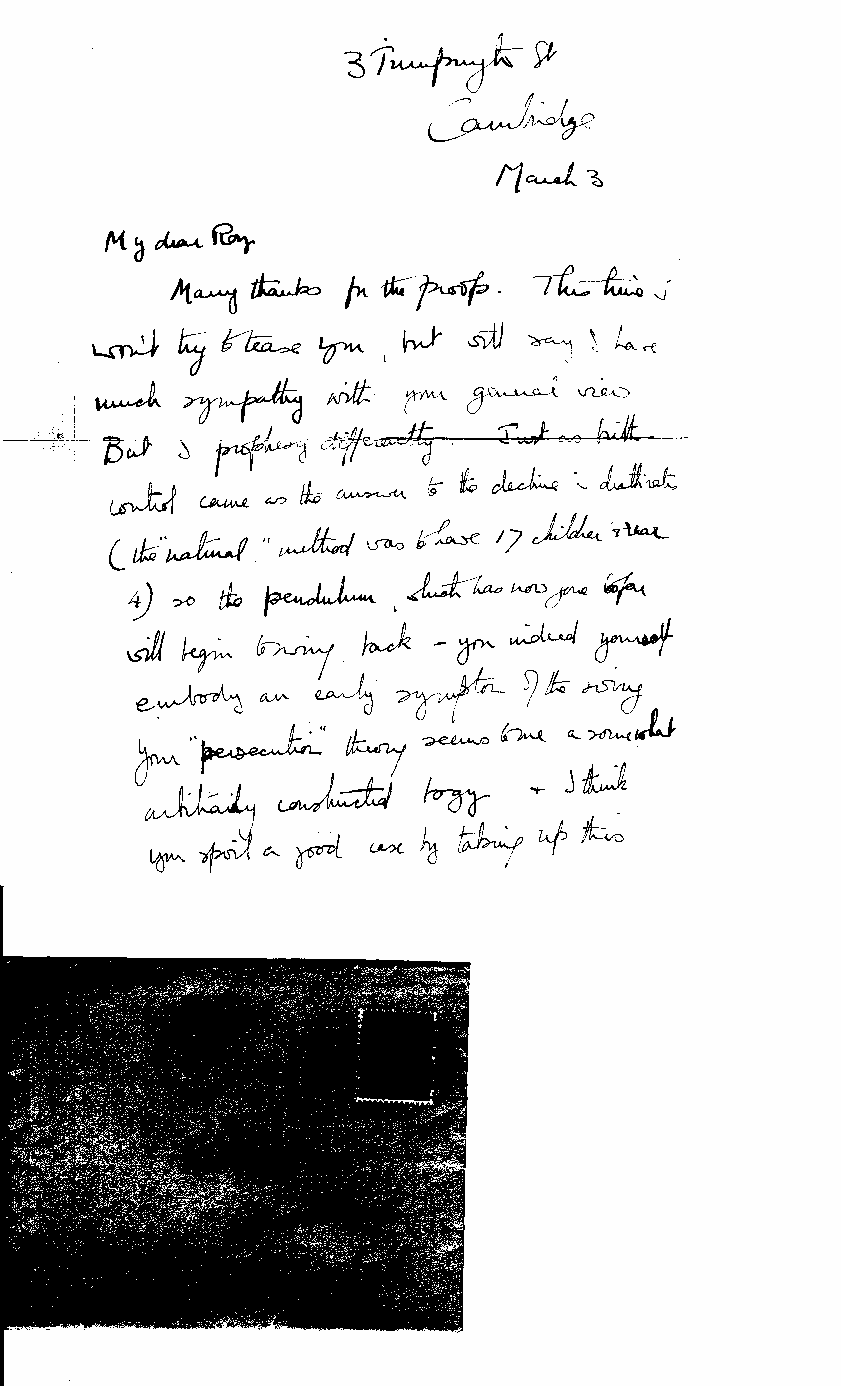 3 Trumpington St
Cambridge
March 3
My dear Roy
Many thanks for the proofs. This time I
won't try to tease you, but will say I have
much sympathy with your general view
But I prophesy differently. Just as birth
control came as the answer to the decline in deathrate
(the "natural" method was to have 17 children & rear
4) so the pendulum, which has now gone too far
will begin to swing back - you indeed yourself
embody an early symptom of the swing
Your "persecution" theory seems to me a somewhat
artificially constructed bogy + I think
you spoil a good case by taking up this